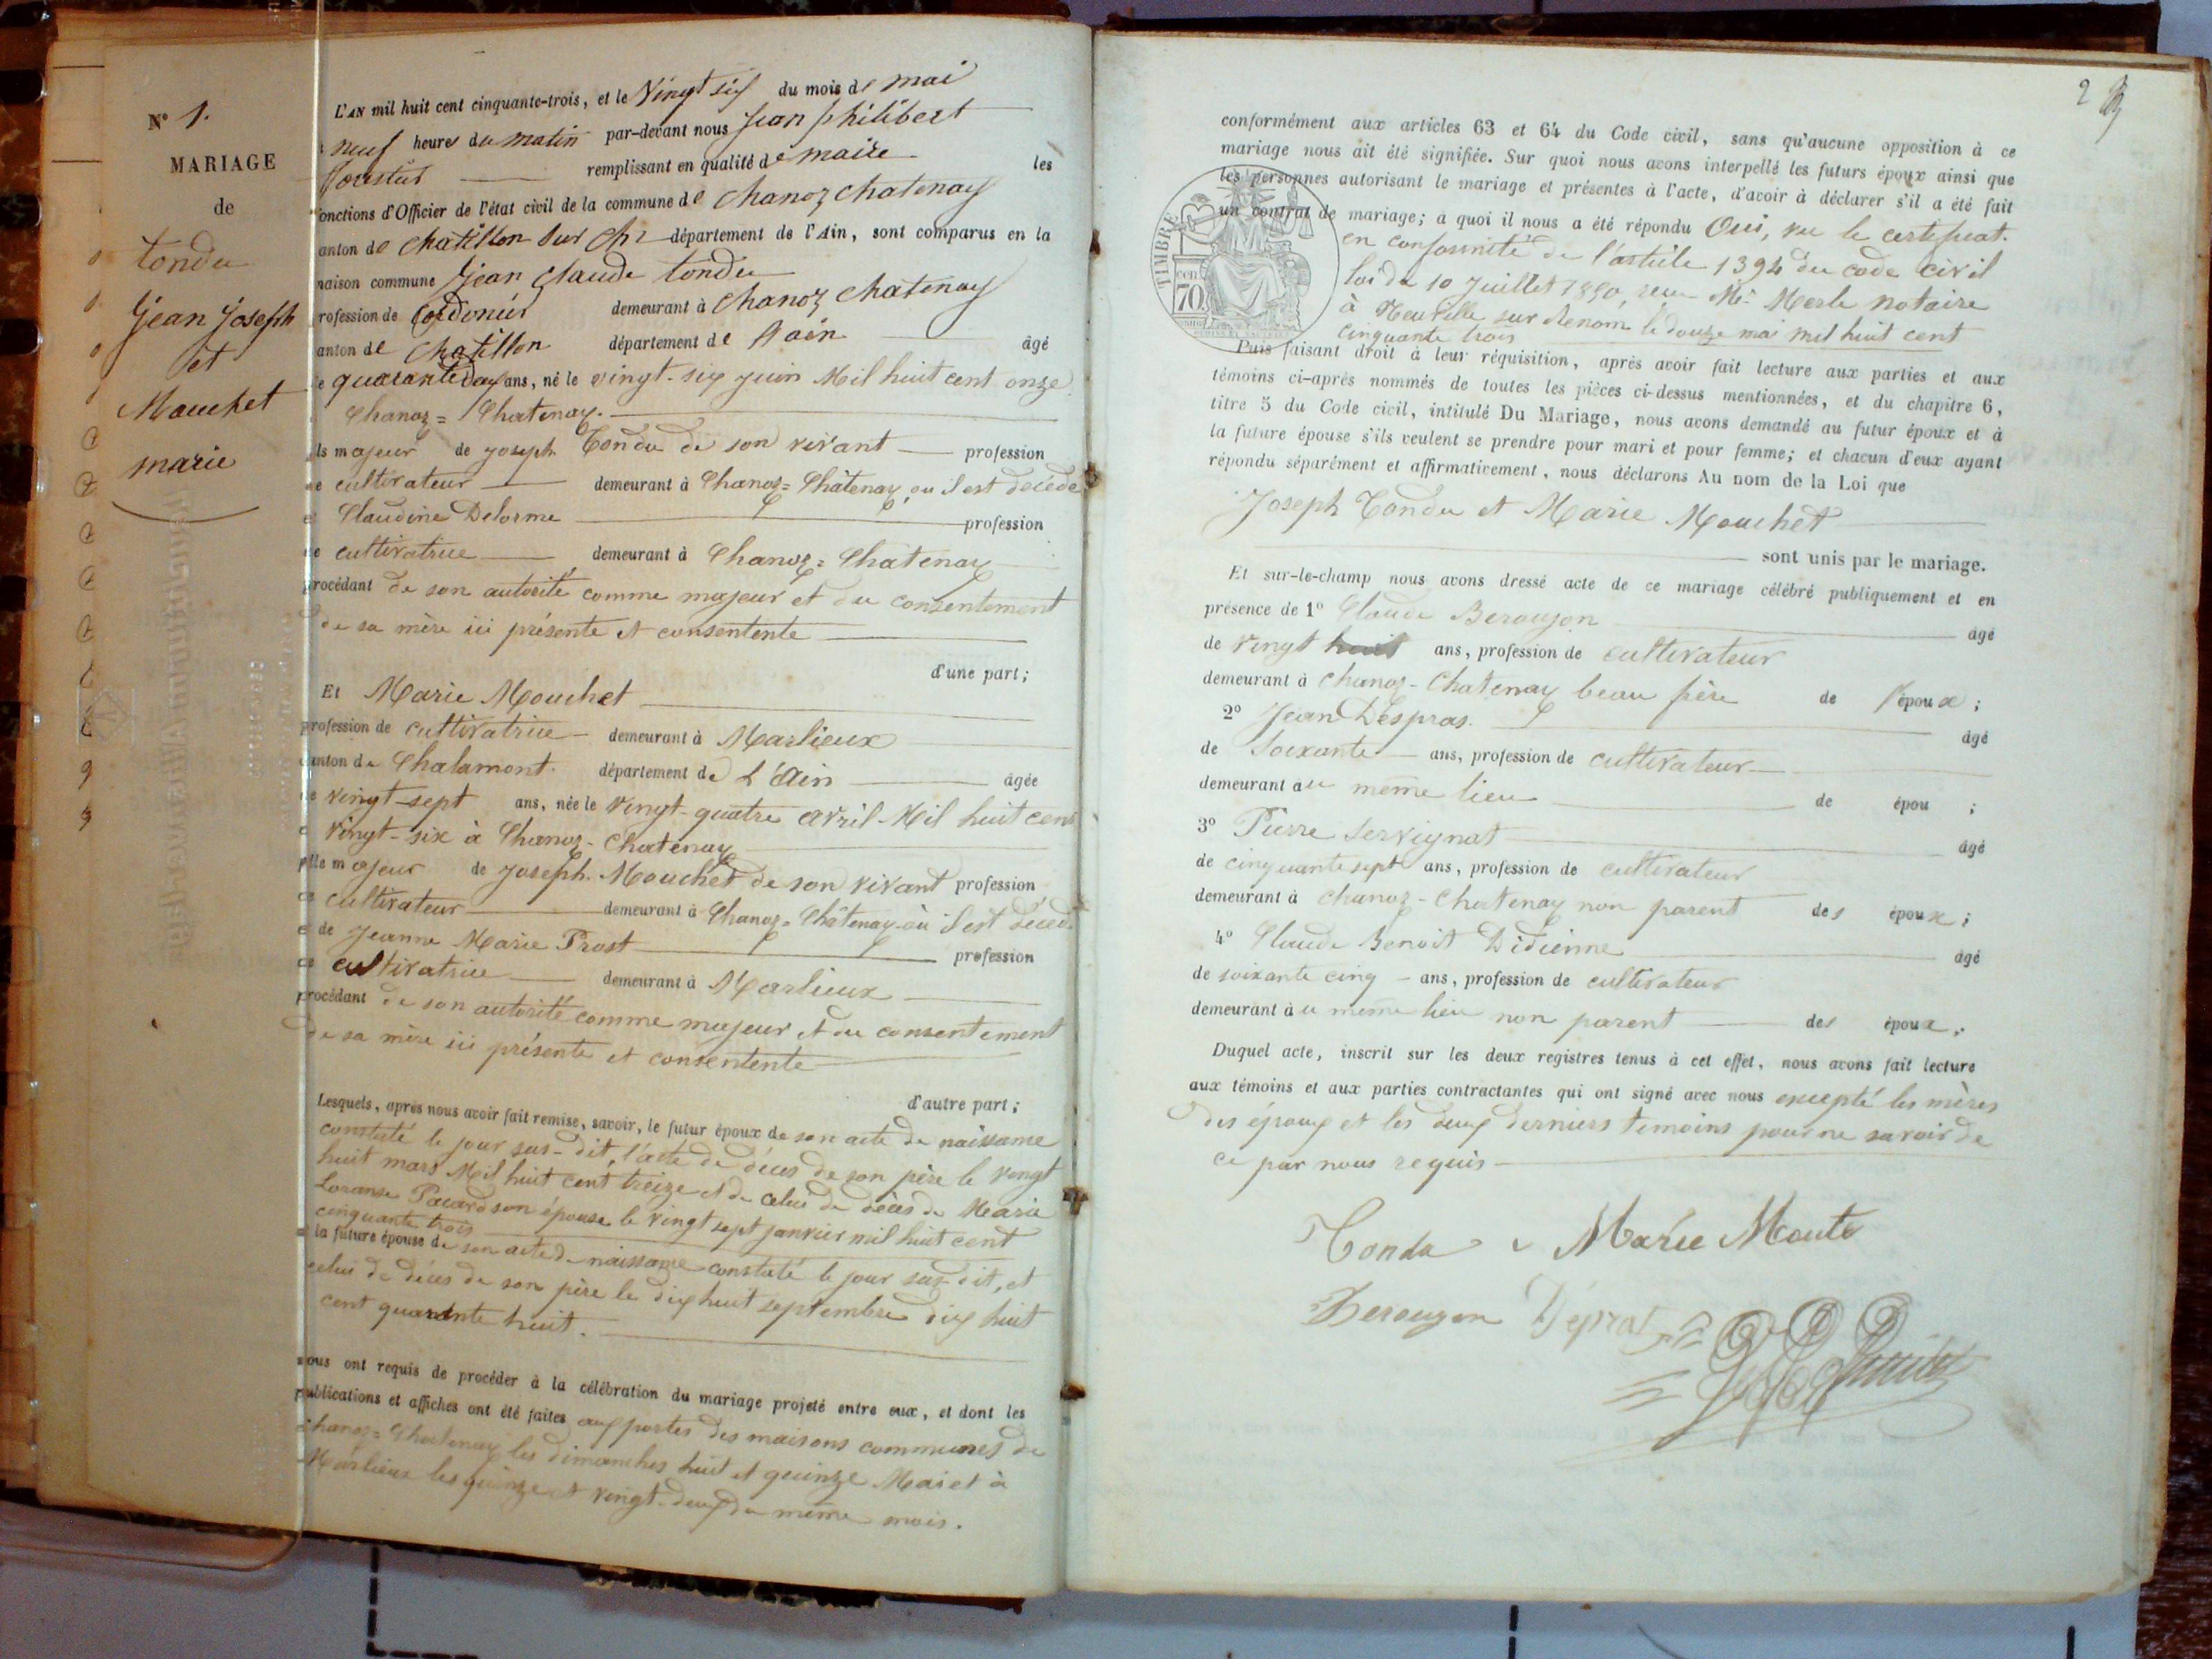 N° 1.
MARIAGE
de
tondu
Jean Joseph
et
Mouchet
marie
L'AN mil huit cent cinquante-trois, et le Vingt six du mois de mai
neuf heures du matin par-devant nous Jean philibert
remplissant en qualité de maire les
onctions d'Officier de l'état civil de la commune de Chanoz chatenay
anton de chatillon sur Ch département de l'Ain, sont comparus en la
maison commune Jean Claude tondu
rofession de Cordonier demeurant à Chanoz chatenay
anton de Chatillon département de l'ain âgé
e quarante deux ans, né le vingt-six juin Mil huit cent onze
Chanoz=Chatenay.
ils majeur de joseph Tondu de son vivant profession
de cultivateur demeurant à Chanoz=Châtenay, ou il est décédé
et Claudine Delorme profession
de cultivatrice demeurant à Chanoz=Chatenay
procédant de son autorité comme majeur et du consentement
de sa mère ici présente et consentente
d'une part;
Et Marie Mouchet
profession de cultivatrice demeurant à Marlieux
canton de Chalamont. département de L'Ain âgée
de vingt-sept ans, née le vingt-quatre avril Mil huit cent
vingt-six à Chanoz-Chatenay
fille majeur de joseph Mouchet de son vivant profession
de cultivateur demeurant à Chanoz=Châtenay où il est décédé
et de Jeanne Marie Prost profession
de cultivatrice demeurant à Marlieux
procédant de son autorité comme majeur et du consentement
de sa mère ici présente et consentente
d'autre part;
Lesquels, après nous avoir fait remise, savoir, le futur époux de son acte de naissance
constaté le jour sus-dit, l'acte de décès de son père le vingt
huit mars Mil huit cent treize et de celui de décès de Marie
Loranse Pacard son épouse le vingt sept janvier mil huit cent
cinquante trois
la future épouse de son acte de naissance constaté le jour sus-dit, et
celui de décès de son père le dix huit septembre dix huit
cent quarante huit.
nous ont requis de procéder à la célébration du mariage projeté entre eux, et dont les
publications et affiches ont été faites aux portes des maisons communes de
Chanoz=Chatenay les dimanches huit et quinze Mai et à
Marlieux les quinze et vingt-deux du même mois.
2
conformément aux articles 63 et 64 du Code civil, sans qu'aucune opposition à ce
mariage nous ait été signifiée. Sur quoi nous avons interpellé les futurs époux ainsi que
les personnes autorisant le mariage et présentes à l'acte, d'avoir à déclarer s'il a été fait
un contrat de mariage; à quoi il nous a été répondu Oui, vu le certificat.
en conformité de l'article 1394 du code civil
Loi du 10 Juillet 1850, reçu Me Merle notaire
à Neuville sur Renom le douze mai mil huit cent
cinquante trois
TIMBRE
cen
70
Puis faisant droit à leur réquisition, après avoir fait lecture aux parties et aux
témoins ci-après nommés de toutes les pièces ci-dessus mentionnées, et du chapitre 6,
titre 5 du Code civil, intitulé Du Mariage, nous avons demandé au futur époux et à
la future épouse s'ils veulent se prendre pour mari et pour femme; et chacun d'eux ayant
répondu séparément et affirmativement, nous déclarons Au nom de la Loi que
Joseph Tondu et Marie Mouchet
sont unis par le mariage.
Et sur-le-champ nous avons dressé acte de ce mariage célébré publiquement et en
présence de 1° Claude Beroujon âgé
de vingt huit ans, profession de cultivateur
demeurant à Chanoz-Chatenay beau frère de l'époux;
2° Jean Despras. âgé
de soixante ans, profession de cultivateur
demeurant au même lieu de épou ;
3° Pierre Servignat âgé
de cinquante sept ans, profession de cultivateur
demeurant à Chanoz-Chatenay non parent des époux;
4° Claude Benoit Didienne âgé
de soixante cinq ans, profession de cultivateur
demeurant au même lieu non parent des époux;
Duquel acte, inscrit sur les deux registres tenus à cet effet, nous avons fait lecture
aux témoins et aux parties contractantes qui ont signé avec nous excepté les mères
des époux et les deux derniers temoins pour ne savoir de
ce par nous requis
Tondu Marie Monte
Berougon Dépras